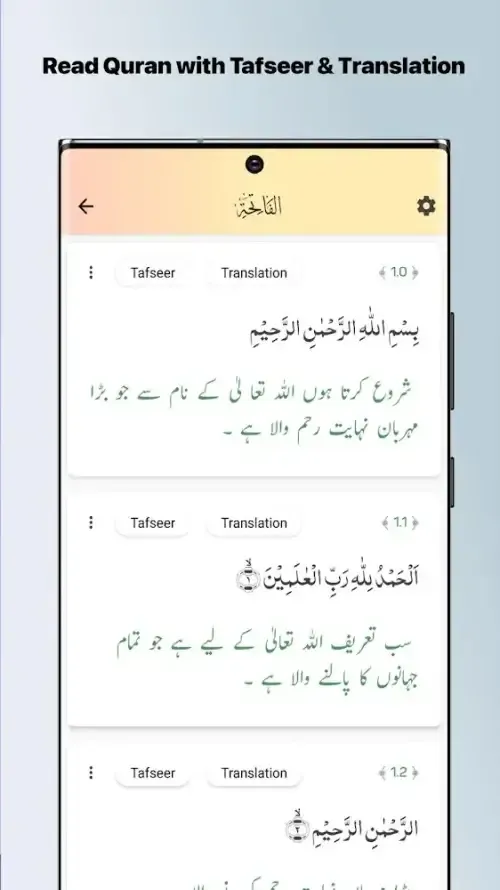 Read Quran with Tafseer & Translation
الفاتحة
Tafseer Translation ﴾1.0﴿
بِسْمِ اللّٰهِ الرَّحْمٰنِ الرَّحِيْمِ
شروع کرتا ہوں اللہ تعا لٰی کے نام سے جو بڑا
مہربان نہایت رحم والا ہے ۔
Tafseer Translation ﴾1.1﴿
اَلْحَمْدُ لِلّٰهِ رَبِّ الْعٰلَمِيْنَۙ ۱
سب تعریف اللہ تعالٰی کے لیے ہے جو تمام
جہانوں کا پالنے والا ہے ۔
Tafseer Translation ﴾1.2﴿
الرَّحْمٰنِ الرَّحِيْمِۙ ۲